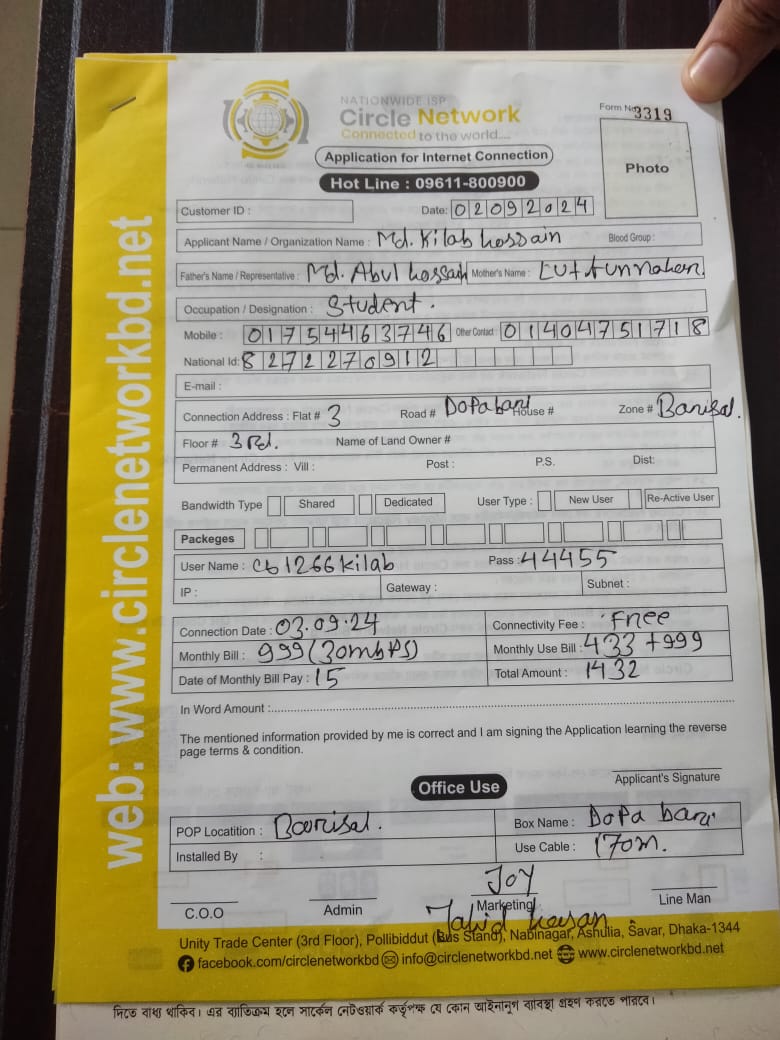 NATIONWIDE ISP
Circle Network
Connected to the world....
Form No. 3319
Application for Internet Connection
Photo
Hot Line : 09611-800900
Customer ID :
Date: 02092024
Applicant Name / Organization Name : Md. Kilab hossain Blood Group :
Father's Name / Representative : Md. Abul hossain Mother's Name : Lutfunnahen
Occupation / Designation : Student.
Mobile : 01754463746 Other Contact : 01404751718
National Id: 8272270912
E-mail :
Connection Address : Flat # 3 Road # Dopabari House # Zone # Barisal.
Floor # 3rd. Name of Land Owner #
Permanent Address : Vill : Post : P.S. Dist:
Bandwidth Type Shared Dedicated User Type : New User Re-Active User
Packeges
User Name : cb1266kilab Pass : 44455
IP : Gateway : Subnet :
Connection Date : 03.09.24 Connectivity Fee : Free
Monthly Bill : 999 (30mbPS) Monthly Use Bill : 433 + 999
Date of Monthly Bill Pay : 15 Total Amount : 1432
In Word Amount :
The mentioned information provided by me is correct and I am signing the Application learning the reverse
page terms & condition.
Applicant's Signature
Office Use
POP Locatition : Barisal. Box Name : Dopa bari
Installed By : Use Cable : 170m.
JOY
C.O.O Admin Marketing Line Man
hasan
Unity Trade Center (3rd Floor), Pollibiddut (Bus Stand), Nabinagar, Ashulia, Savar, Dhaka-1344
facebook.com/circlenetworkbd info@circlenetworkbd.net www.circlenetworkbd.net
web: www.circlenetworkbd.net
দিতে বাধ্য থাকিব। এর ব্যতিক্রম হলে সার্কেল নেটওয়ার্ক কর্তৃপক্ষ যে কোন আইনানুগ ব্যবস্থা গ্রহণ করতে পারবে।